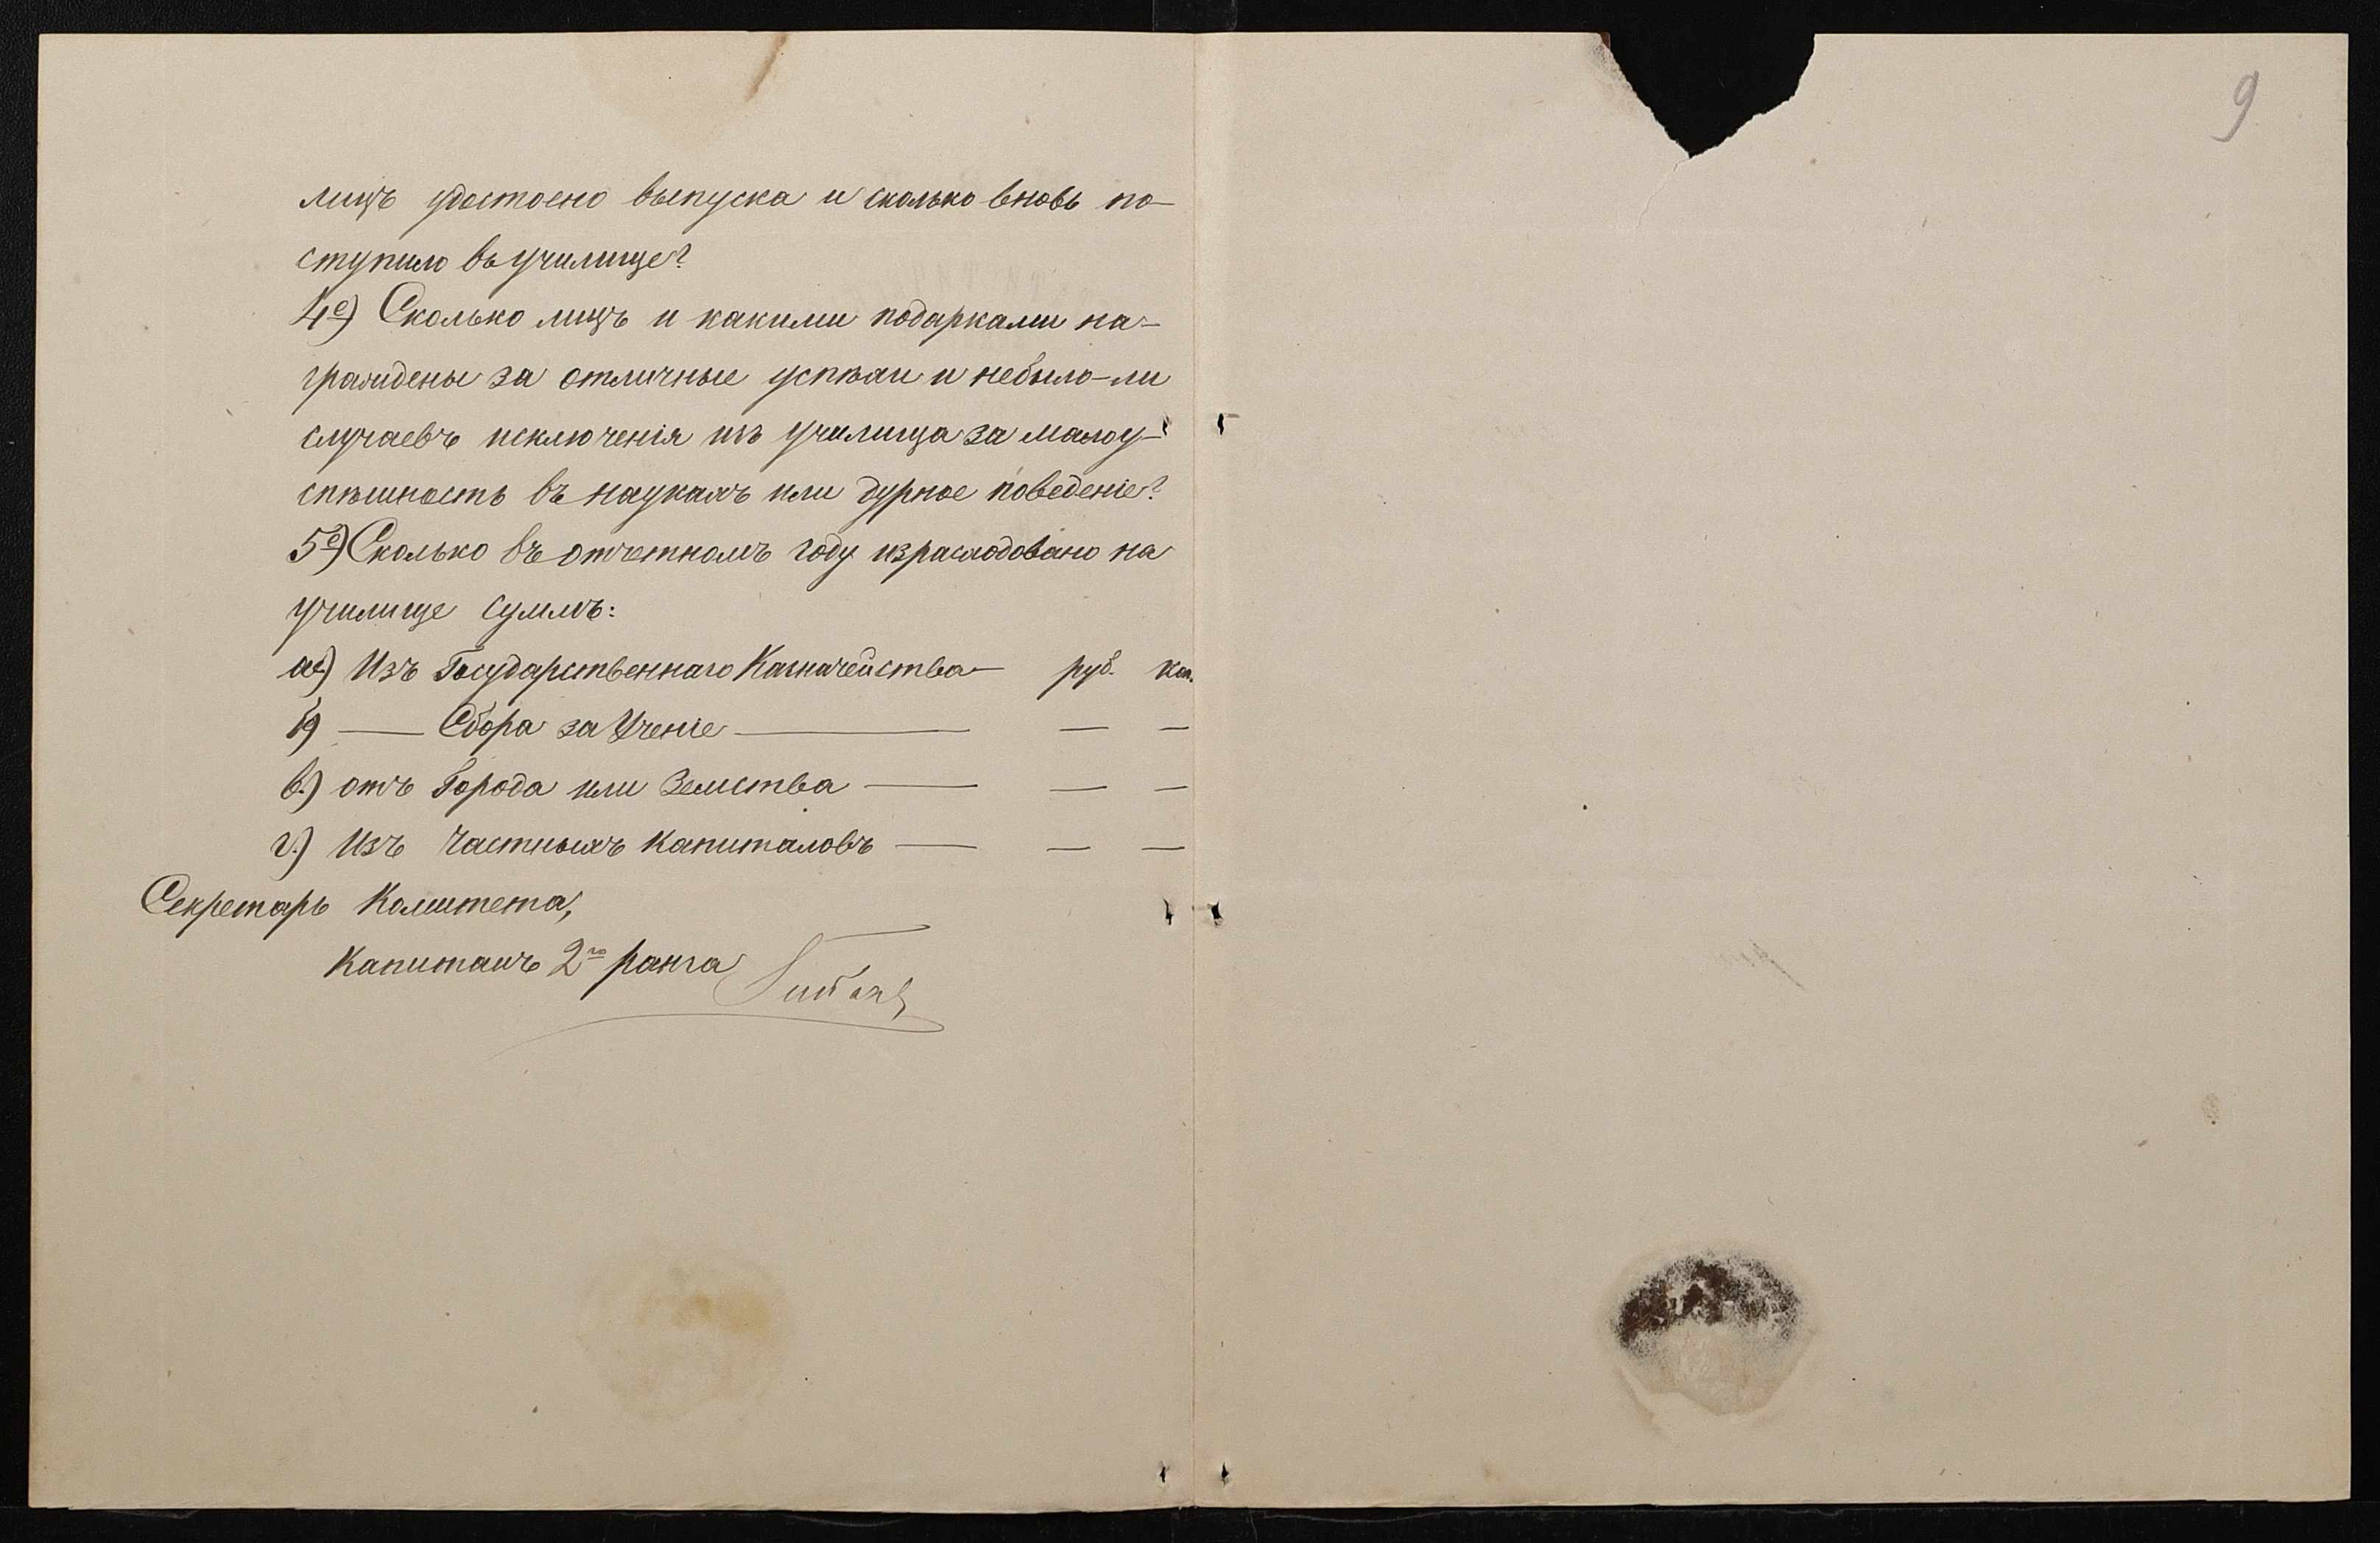 лицъ удостоено выпуска и сколько вновь по-
ступило въ училище?
4е) Сколько лицъ и какими подарками на-
граждены за отличные успѣхи и небыло-ли
случаевъ исключенія изъ училища за малоу-
спѣшность въ наукахъ или дурное поведеніе?
5е) Сколько въ отчетномъ году израсходовано на
училище суммъ:
а) Изъ Государственнаго Казначейства — руб. коп.
б) — Сбора за Ученіе — — —
в.) отъ Города или Земства — — —
г.) Изъ Частныхъ Капиталовъ — — —
Секретарь Комитета,
Капитанъ 2го ранга
9